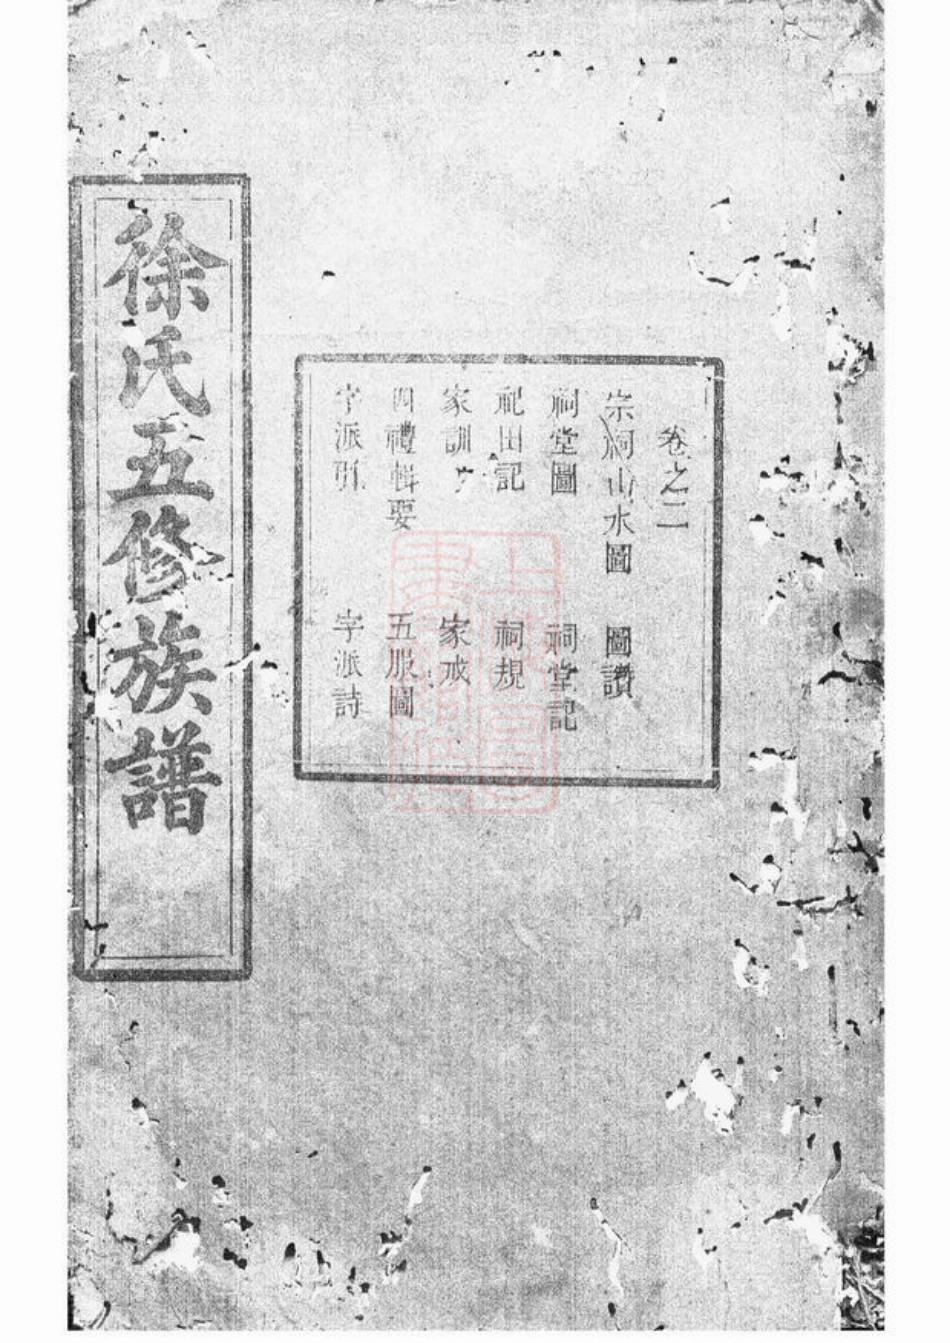 徐氏五修族譜
卷之二
宗祠山水圖 圖讚
祠堂圖 祠堂記
祀田記 祠規
家訓 家戒
四禮輯要 五服圖
字派引 字派詩